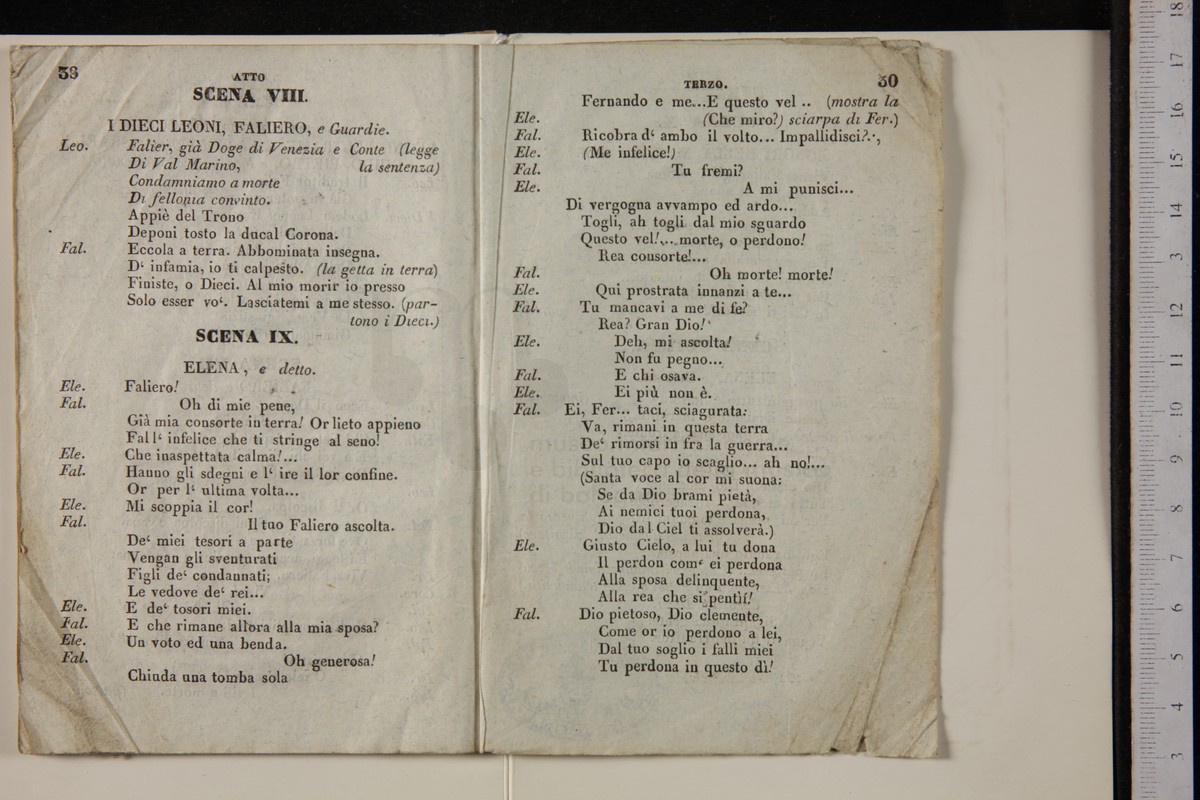 38
ATTO
SCENA VIII.
I DIECI LEONI, FALIERO, e Guardie.
Leo. Falier, già Doge di Venezia e Conte (legge
Di Val Marino, la sentenza)
Condamniamo a morte
Di fellonia convinto.
Appiè del Trono
Deponi tosto la ducal Corona.
Fal. Eccola a terra. Abbominata insegna.
D‘ infamia, io ti calpesto. (la getta in terra)
Finiste, o Dieci. Al mio morir io presso
Solo esser vo‘. Lasciatemi a me stesso. (par-
tono i Dieci.)
SCENA IX.
ELENA, e detto.
Ele. Faliero!
Fal. Oh di mie pene,
Già mia consorte in terra! Or lieto appieno
Fal l‘ infelice che ti stringe al seno!
Ele. Che inaspettata calma!...
Fal. Hanno gli sdegni e l‘ ire il lor confine.
Or per l‘ ultima volta...
Ele. Mi scoppia il cor!
Fal. Il tuo Faliero ascolta.
De‘ miei tesori a parte
Vengan gli sventurati
Figli de‘ condannati;
Le vedove de‘ rei...
Ele. E de‘ tosori miei.
Fal. E che rimane allora alla mia sposa?
Ele. Un voto ed una benda.
Fal. Oh generosa!
Chiuda una tomba sola
TERZO. 30
Fernando e me...E questo vel .. (mostra la
Ele. (Che miro?) sciarpa di Fer.)
Fal. Ricobra d‘ ambo il volto... Impallidisci?.,
Ele. (Me infelice!)
Fal. Tu fremi?
Ele. A mi punisci...
Di vergogna avvampo ed ardo...
Togli, ah togli dal mio sguardo
Questo vel!... morte, o perdono!
Rea consorte!...
Fal. Oh morte! morte!
Ele. Qui prostrata innanzi a te...
Fal. Tu mancavi a me di fe?
Rea? Gran Dio!
Ele. Deh, mi ascolta!
Non fu pegno...
Fal. E chi osava.
Ele. Ei più non è.
Fal. Ei, Fer... taci, sciagurata:
Va, rimani in questa terra
De‘ rimorsi in fra la guerra...
Sul tuo capo io scaglio... ah no!...
(Santa voce al cor mi suona:
Se da Dio brami pietà,
Ai nemici tuoi perdona,
Dio dal Ciel ti assolverà.)
Ele. Giusto Cielo, a lui tu dona
Il perdon com‘ ei perdona
Alla sposa delinquente,
Alla rea che si pentìi!
Fal. Dio pietoso, Dio clemente,
Come or io perdono a lei,
Dal tuo soglio i falli miei
Tu perdona in questo dì!
18
17
16
15
14
13
12
11
10
9
8
7
6
5
4
3